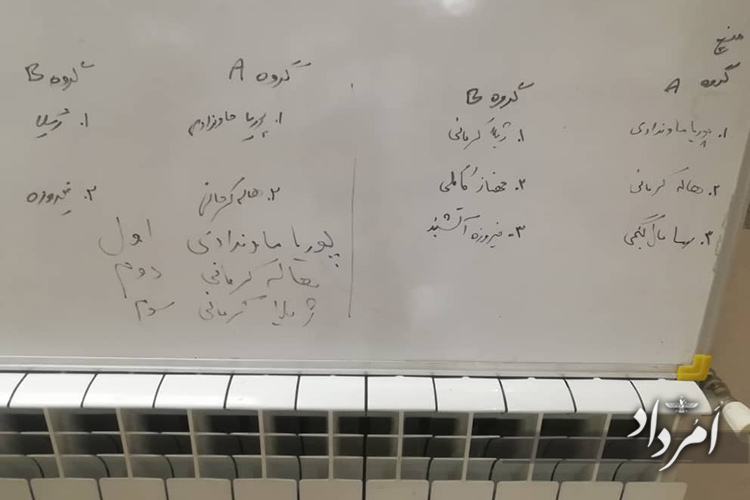 گروه A
۱. پوریا ماوندادی
۲. هاله کرمانی
۳.
گروه B
۱. ژیلا کرمانی
۲. مهناز
۳. فیروزه آتشبند
گروه A
۱. پوریا ماوندادی
۲. هاله کرمانی
گروه B
۱. ژیلا
۲. فیروزه
پوریا ماوندادی اول
هاله کرمانی دوم
ژیلا کرمانی سوم
اَمُرداد